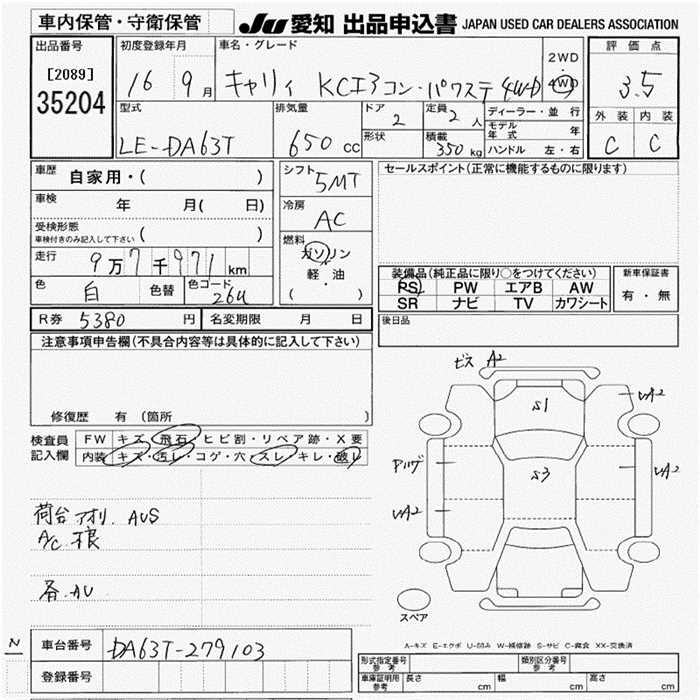 車内保管・守衛保管
JU 愛知 出品申込書 JAPAN USED CAR DEALERS ASSOCIATION
出品番号
[2089]
35204
初度登録年月
16 9月
車名・グレード
キャリィ KCエアコン・パワステ 4WD
2WD
4WD
評価点
3.5
外装 内装
C C
型式
LE-DA63T
排気量
650 cc
ドア
2
形状
定員
2人
積載
350 kg
ディーラー・並行
モデル年式 年
ハンドル 左・右
車歴
自家用・( )
車検
年 月( 日)
受検形態
車検付きのみ記入して下さい ( )
走行
9万7千971km
色
白
色替
色コード
26U
シフト
5MT
冷房
AC
燃料
ガソリン
・
軽・油
( )
セールスポイント(正常に機能するものに限ります)
装備品(純正品に限り○をつけてください)
PS PW エアB AW
SR ナビ TV カワシート
新車保証書
有・無
R券 5380 円
名変期限 月 日
後日品
注意事項申告欄(不具合内容等は具体的に記入して下さい)
修復歴 有 (箇所 )
検査員記入欄
FW キズ・飛石・ヒビ割・リペア跡・X要
内装 キズ・汚レ・コゲ・穴・スレ・キレ・破レ
荷台アオリ. AUS
A/C 不良
各 AU
ビス A2
S1
S3
UA2
UA2
UA2
スペア
A-キズ E-エクボ U-凹み W-補修跡 S-サビ C-腐食 XX-交換済
N
車台番号
DA63T-279103
登録番号
形式指定番号
参考
類別区分番号
参考
車庫証明用
参考
長さ cm
幅 cm
高さ cm